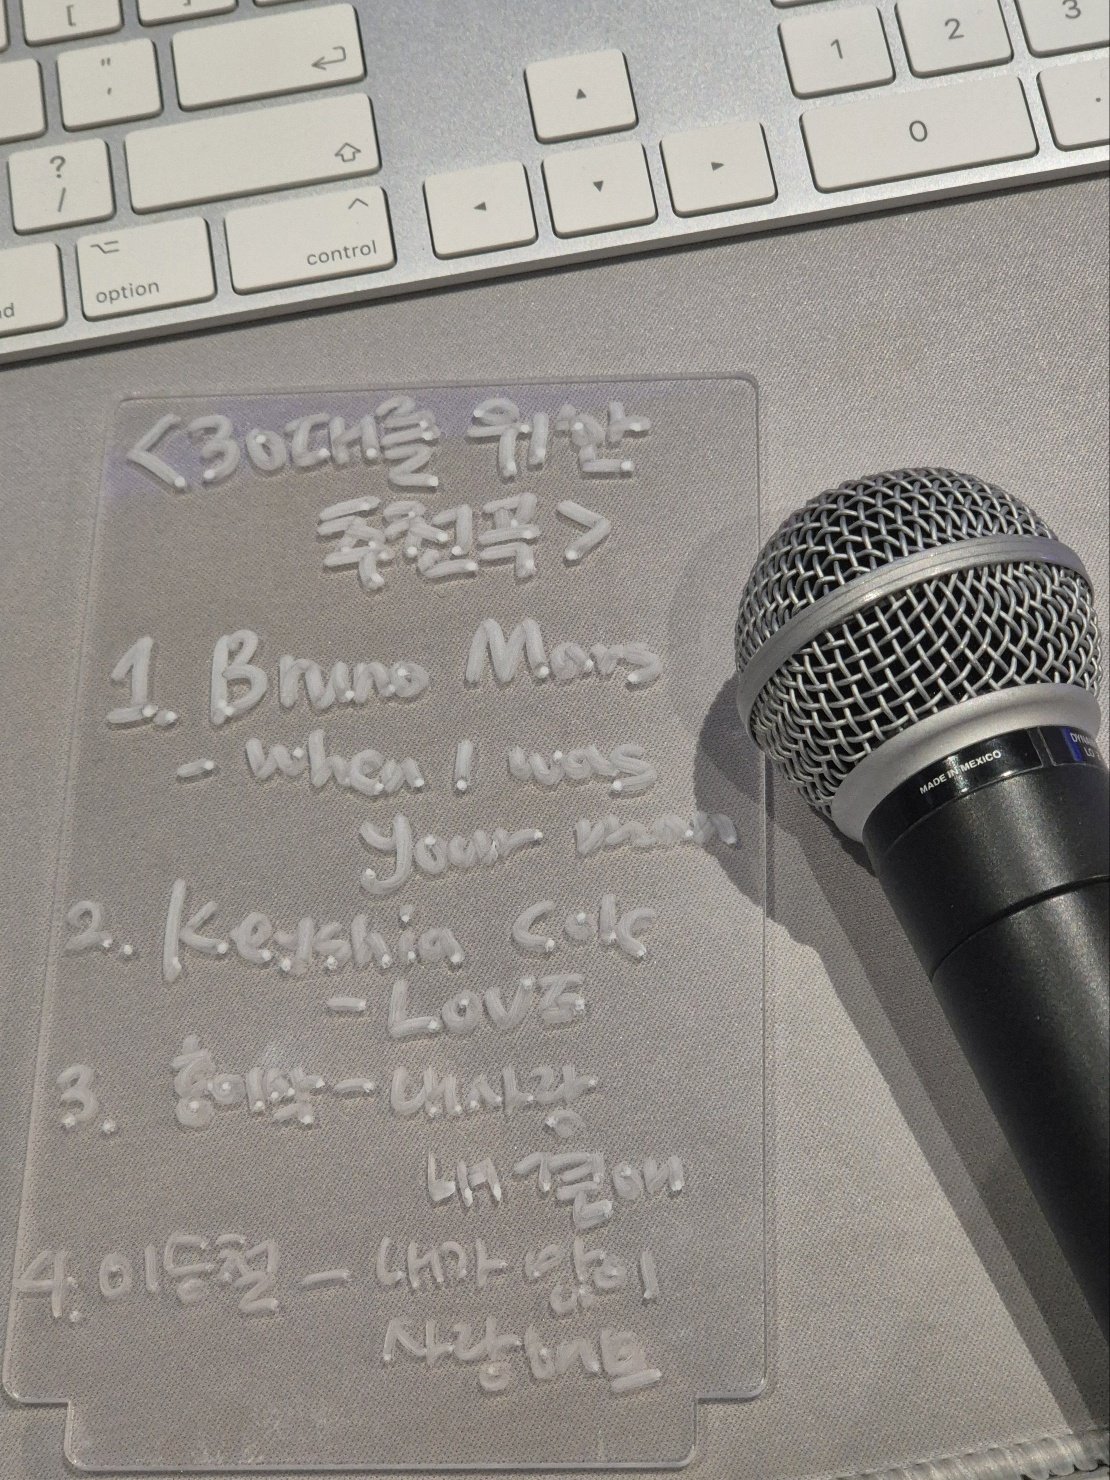 [
"
'
?
/
option
control
1
2
3
0
.
<30대를 위한
추천곡>
1. Bruno Mars
- when I was
your man
2. Keyshia Cole
- LOVE
3. 홍이삭 - 내사랑
내 곁에
4. 이승철 - 내가 많이
사랑해요
MADE IN MEXICO